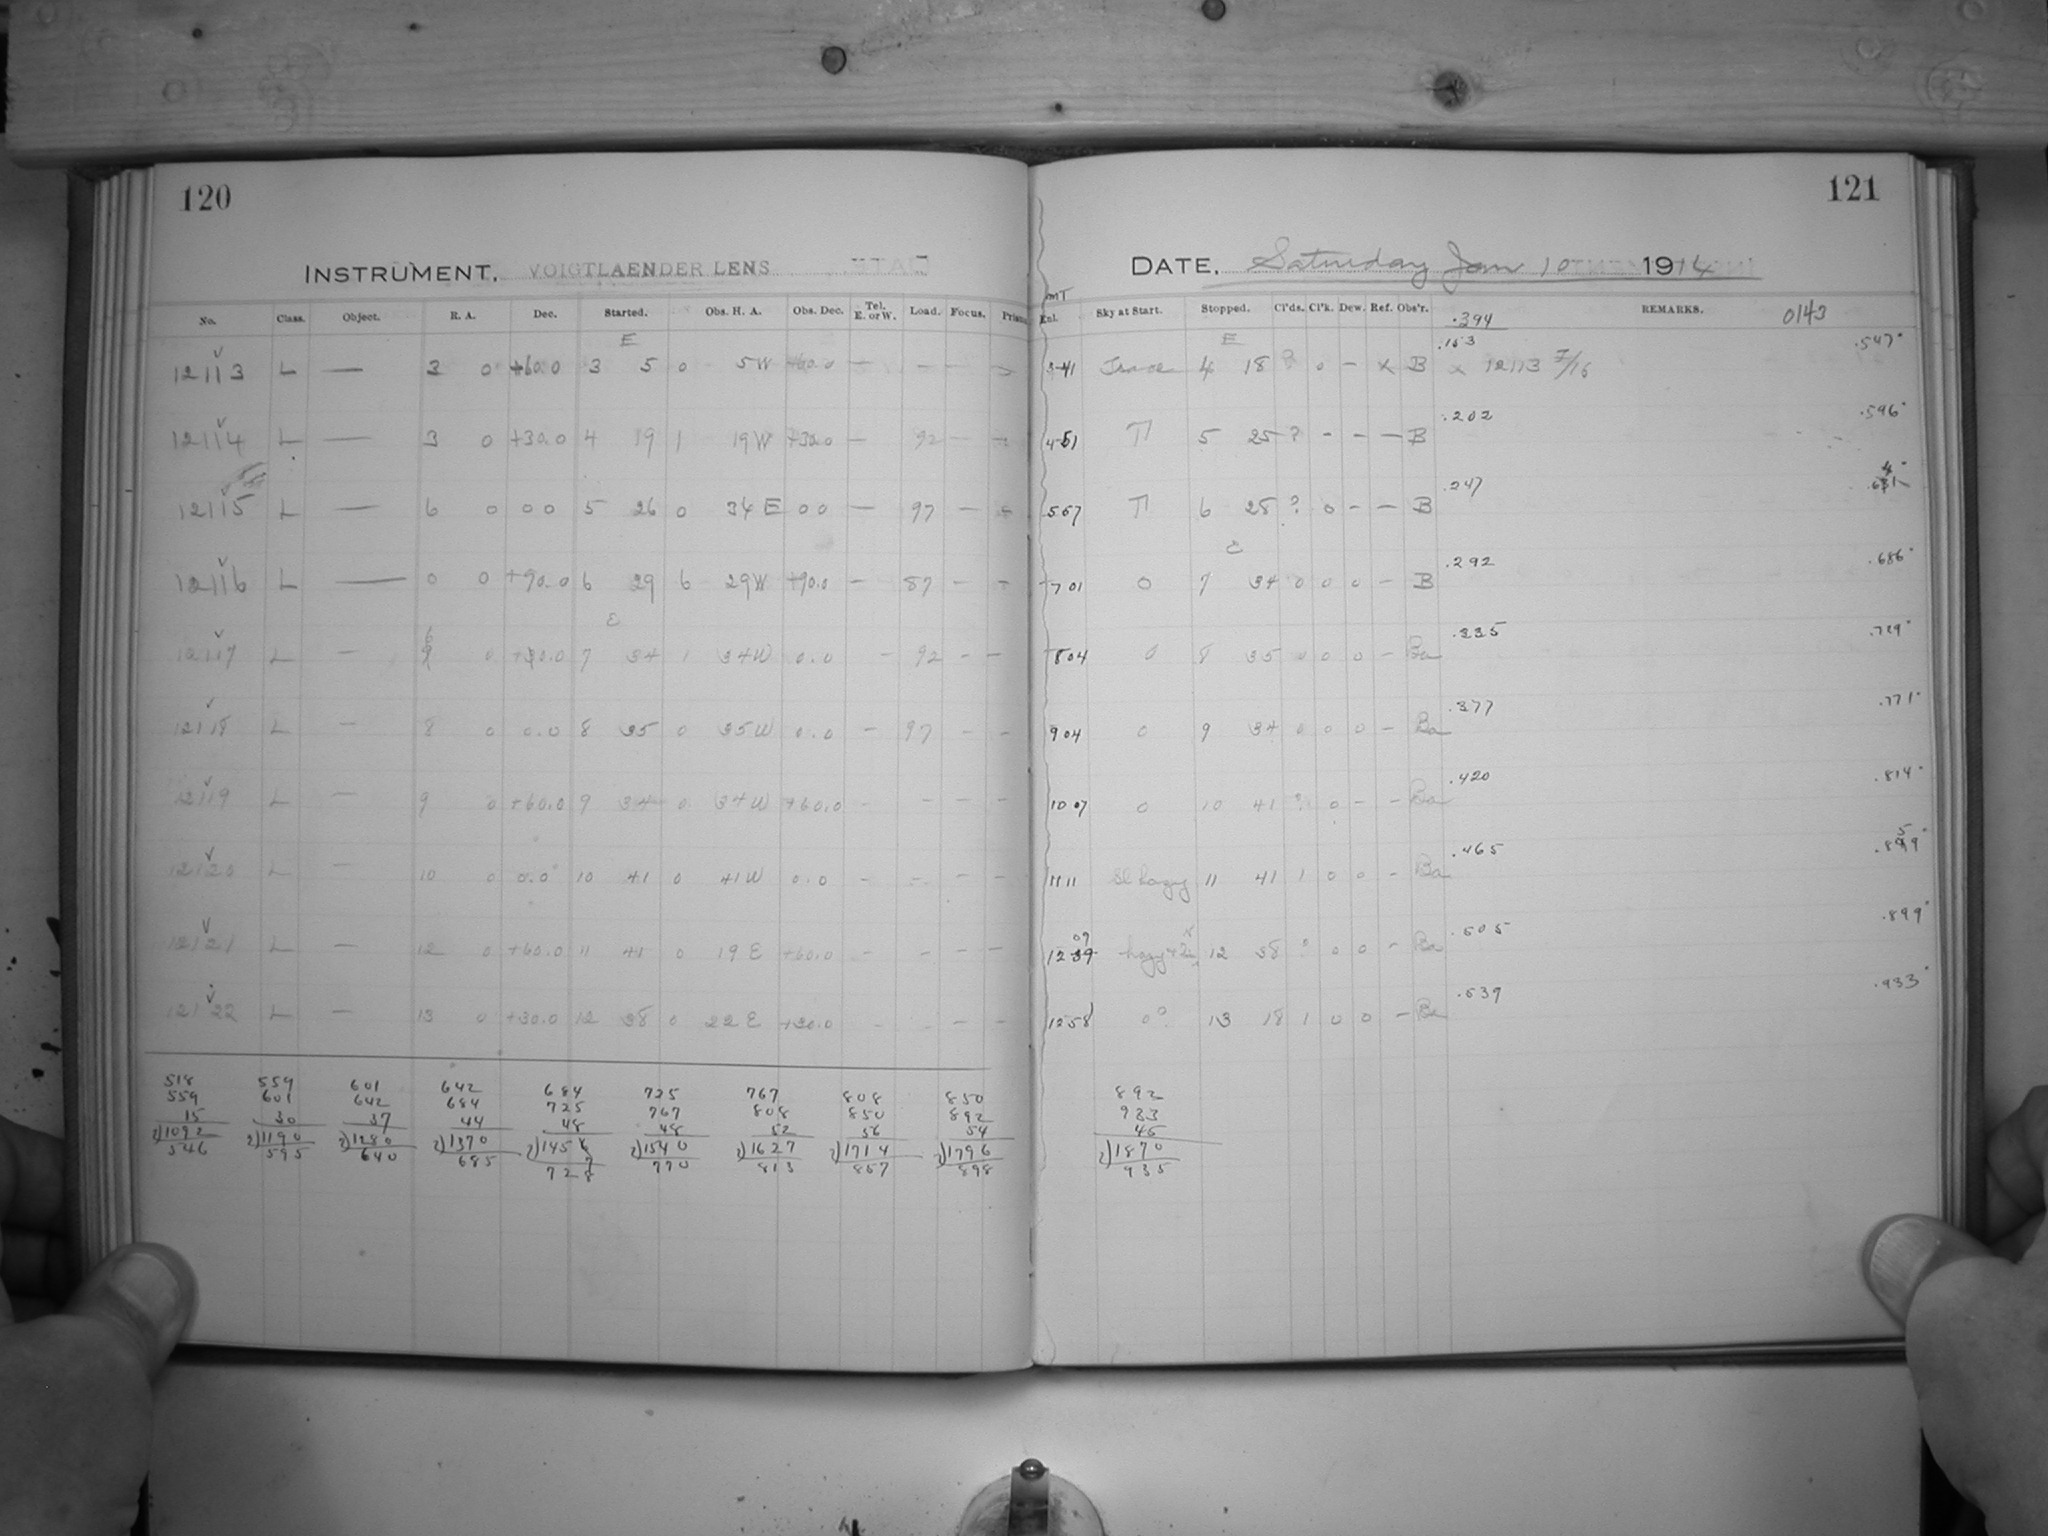 120
INSTRUMENT, VOIGTLAENDER LENS
No. Class. Object. R. A. Dec. Started. Obs. H. A. Obs. Dec. Tel. E. or W. Load. Focus.
E
12113 L — 3 0 +60.0 3 5 0 5W +60.0 — — —
12114 L — 3 0 +30.0 4 19 1 19W +30.0 — 92 — —
12115 L — 6 0 0 0 5 26 0 34 E 0 0 — 97 —
12116 L — 0 0 +90.0 6 29 6 29W +90.0 — 87 — —
12117 L — 0 7 34 1 34W 0.0 — 92 — —
12118 L — 8 0 0.0 8 35 0 35W 0.0 — 97 — —
12119 L — 9 0 +60.0 9 34 0 34W +60.0 — — — —
12120 L — 10 0 0.0 10 41 0 41W 0.0 — — — —
12121 L — 12 0 +60.0 11 41 0 19 E +60.0 — — — —
12122 L — 13 0 +30.0 12 38 0 22 E +30.0 — — — —
518 559 601 642 684 725 767 808 850
559 601 642 684 725 767 808 850 892
15 30 37 44 48 48 52 56 54
2)1092 2)1190 2)1280 2)1370 2)1456 2)1540 2)1627 2)1714 2)1796
546 595 640 685 728 770 813 857 898
121
DATE, Saturday Jan 10 1914
MT
Sky at Start. Stopped. Cl'ds. Cl'k. Dew. Ref. Obs'r. REMARKS. 0143
.394
E .153 .547
3 41 Trace 4 18 ? 0 — x B x 12113 7/16
.202 .596
4 51 T 5 25 ? - — — B
.247
5 57 T 6 28 ? 0 — — B
.292 .686
7 01 0 7 34 0 0 0 — B
.335 .729
8 04 0 8 35 0 0 0 — Ba
.377 .771
9 04 0 9 34 0 0 0 — Ba
.420 .814
10 07 0 10 41 ? 0 — — Ba
.465
11 11 Sl hazy 11 41 1 0 0 — Ba
.505 .899
12 09 hazy 12 38 ? 0 0 — Ba
.539 .933
12 58 0? 13 18 1 0 0 — Ba
892
933
45
2)1870
935